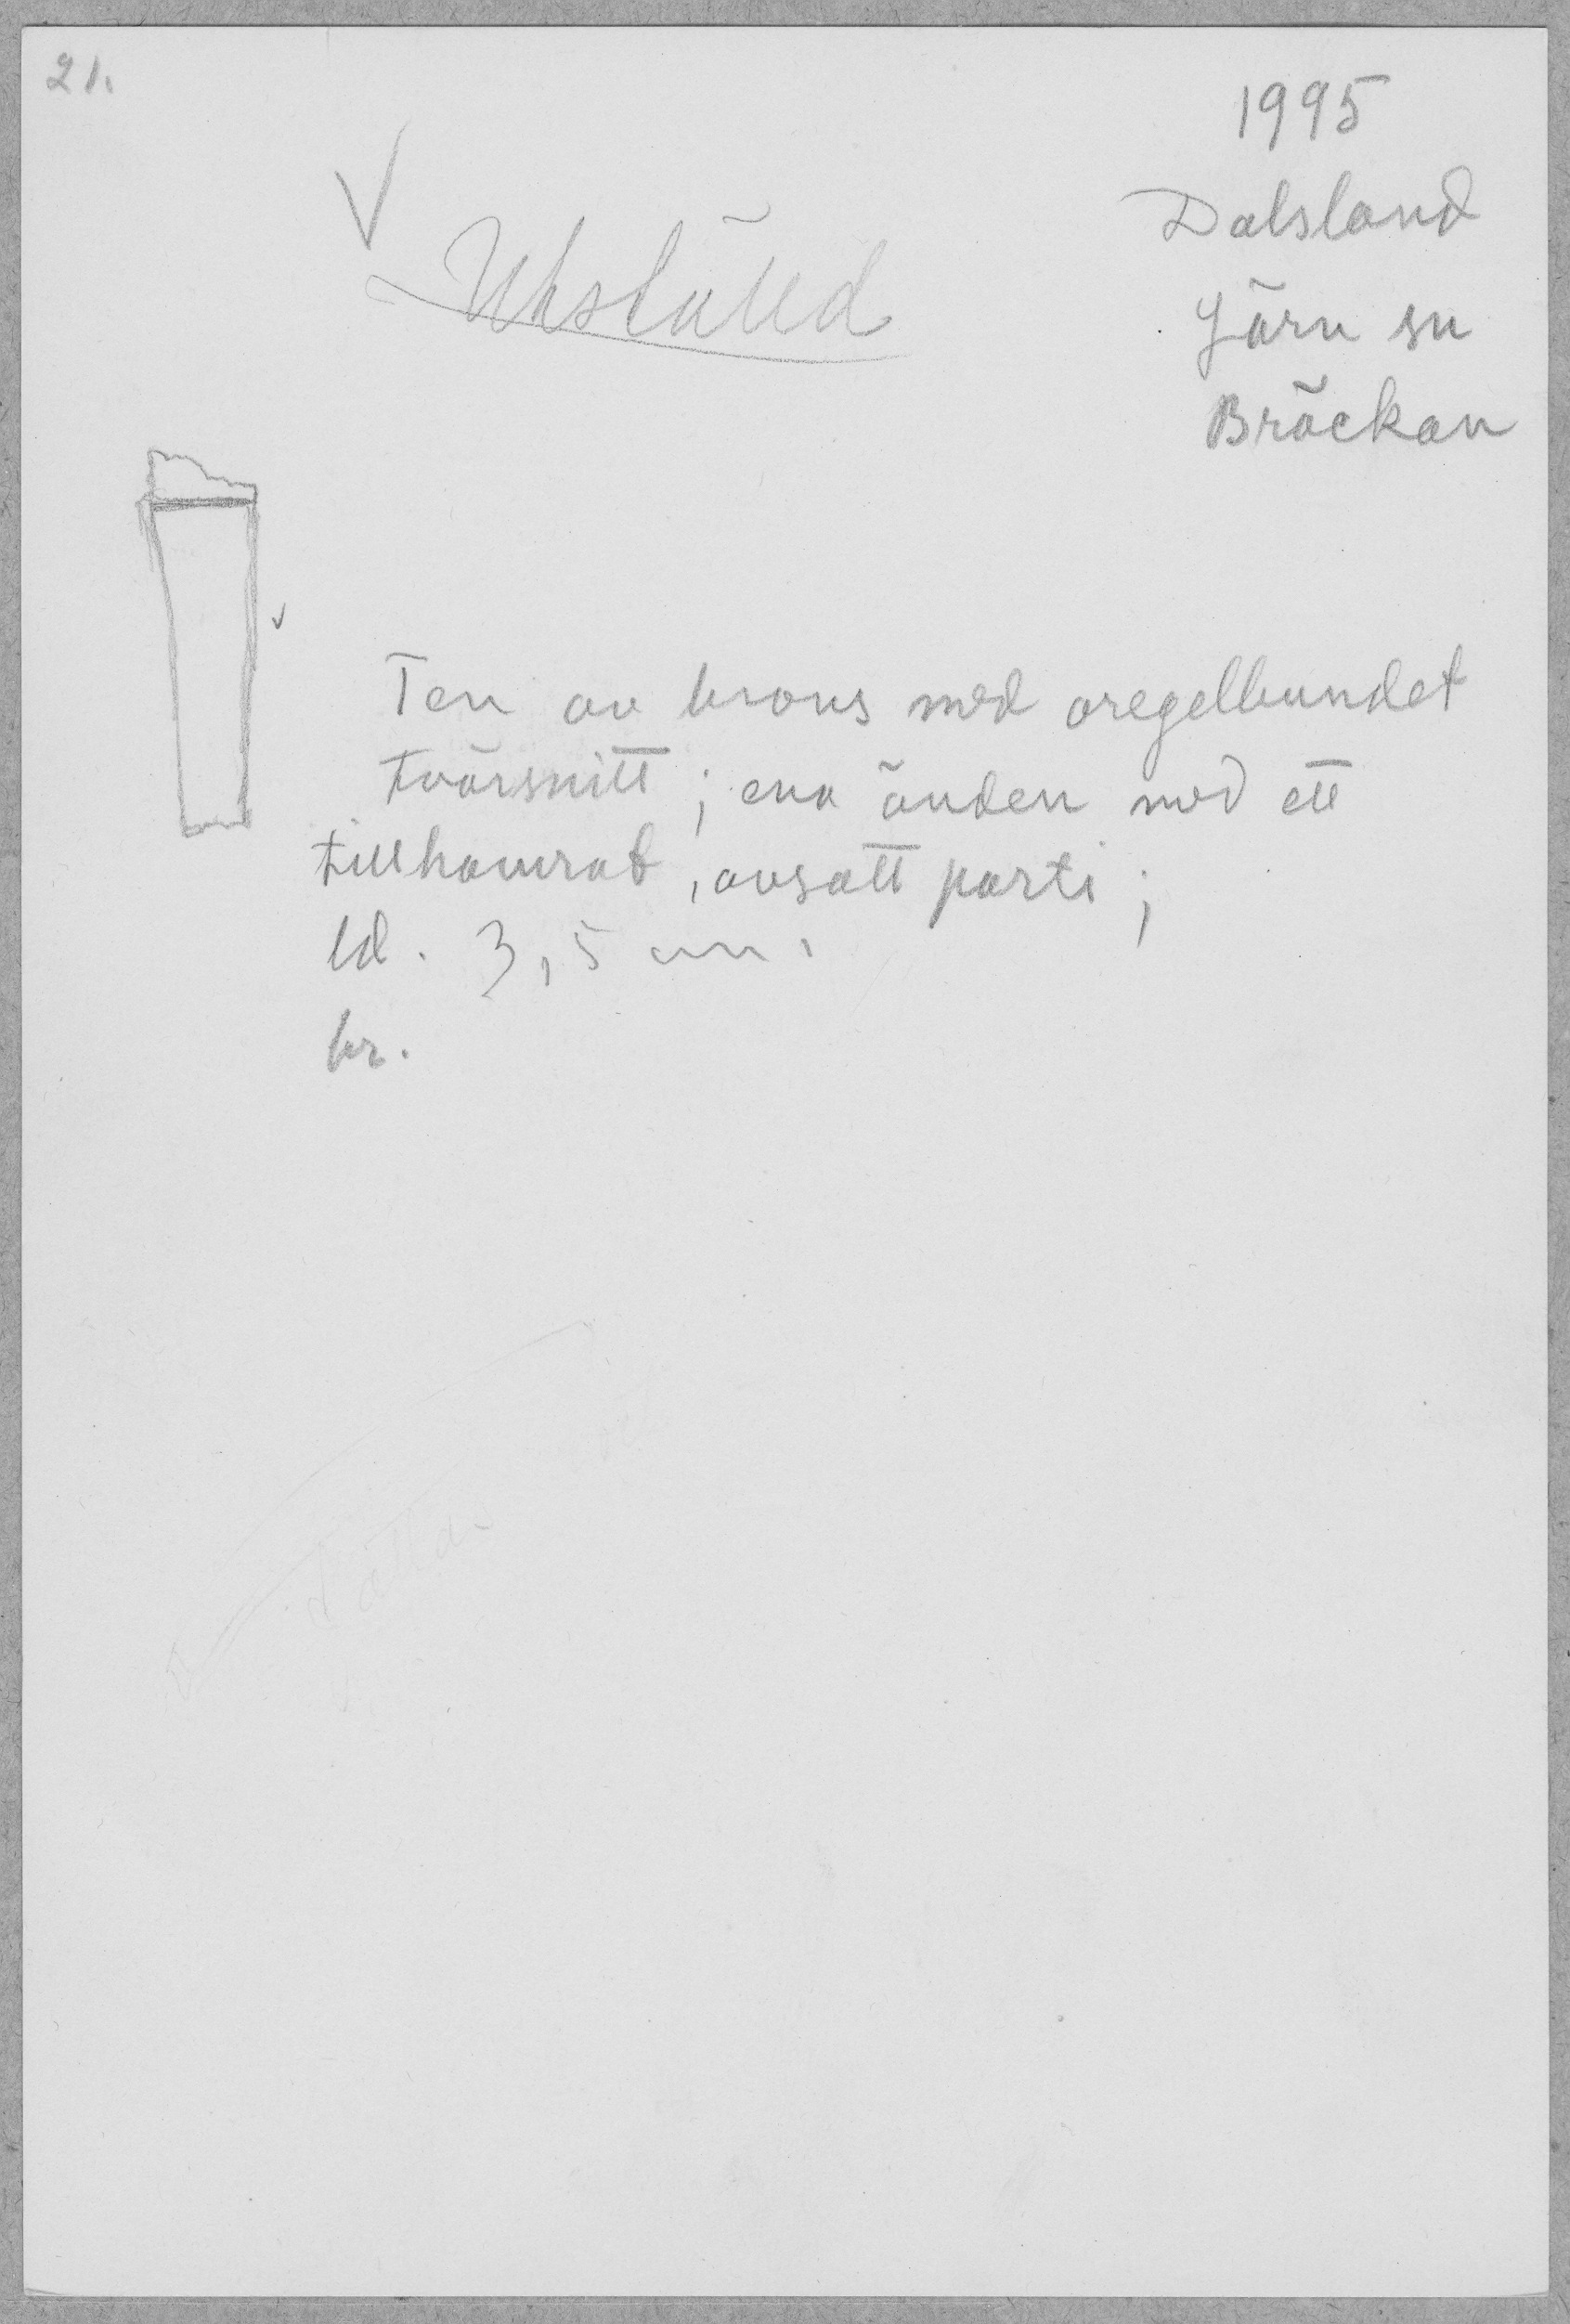 21.
1995
Dalsland
Järn sn
Bräckan
Utställd
Ten av brons med oregelbundet
tvärsnitt ; ena änden med ett
tillhamrat, avsatt parti ;
ld. 3,5 cm.
br.